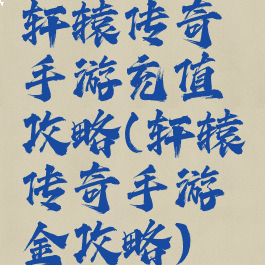 轩辕传奇
手游充值
攻略(轩辕
传奇手游
金攻略)